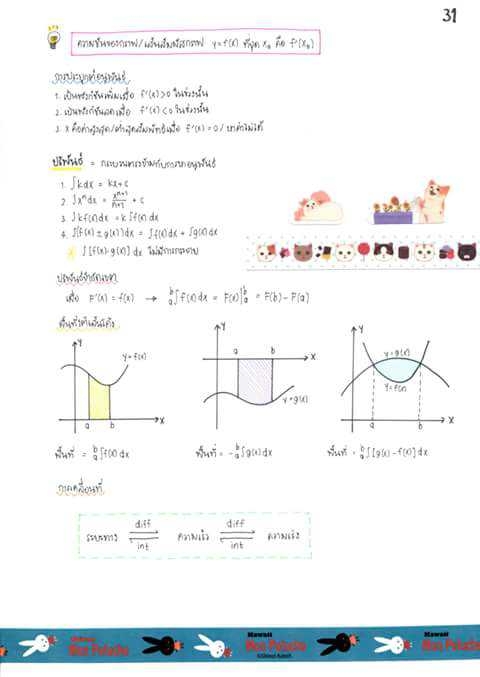 31
ความชันของกราฟ/เส้นสัมผัสกราฟ y=f(x) ที่จุด x₀ คือ f'(x₀)
การประยุกต์อนุพันธ์
1. เป็นฟังก์ชันเพิ่มเมื่อ f'(x) > 0 ในช่วงนั้น
2. เป็นฟังก์ชันลดเมื่อ f'(x) < 0 ในช่วงนั้น
3. x คือค่าสูงสุด/ต่ำสุดสัมพัทธ์เมื่อ f'(x) = 0 / หาค่าไม่ได้
ปริพันธ์ = กระบวนการตรงข้ามกับการหาอนุพันธ์
1. ∫k dx = kx + c
2. ∫xⁿ dx = xⁿ⁺¹/n+1 + c
3. ∫k f(x) dx = k ∫f(x) dx
4. ∫(f(x) ± g(x)) dx = ∫f(x) dx ± ∫g(x) dx
∫[f(x)·g(x)] dx ไม่มีการกระจาย
ปริพันธ์จำกัดเขต
เมื่อ F'(x) = f(x) → ᵇₐ∫f(x) dx = F(x)]ᵇₐ = F(b) - F(a)
พื้นที่ใต้เส้นโค้ง
y y = f(x) a b x
y a b x y = g(x)
y y = g(x) y = f(x) a b x
พื้นที่ = ᵇₐ∫f(x) dx พื้นที่ = -ᵇₐ∫g(x) dx พื้นที่ = ᵇₐ∫[g(x) - f(x)] dx
การเคลื่อนที่
diff diff
ระยะทาง ความเร็ว ความเร่ง
int int
Kawaii
Mon Peluche